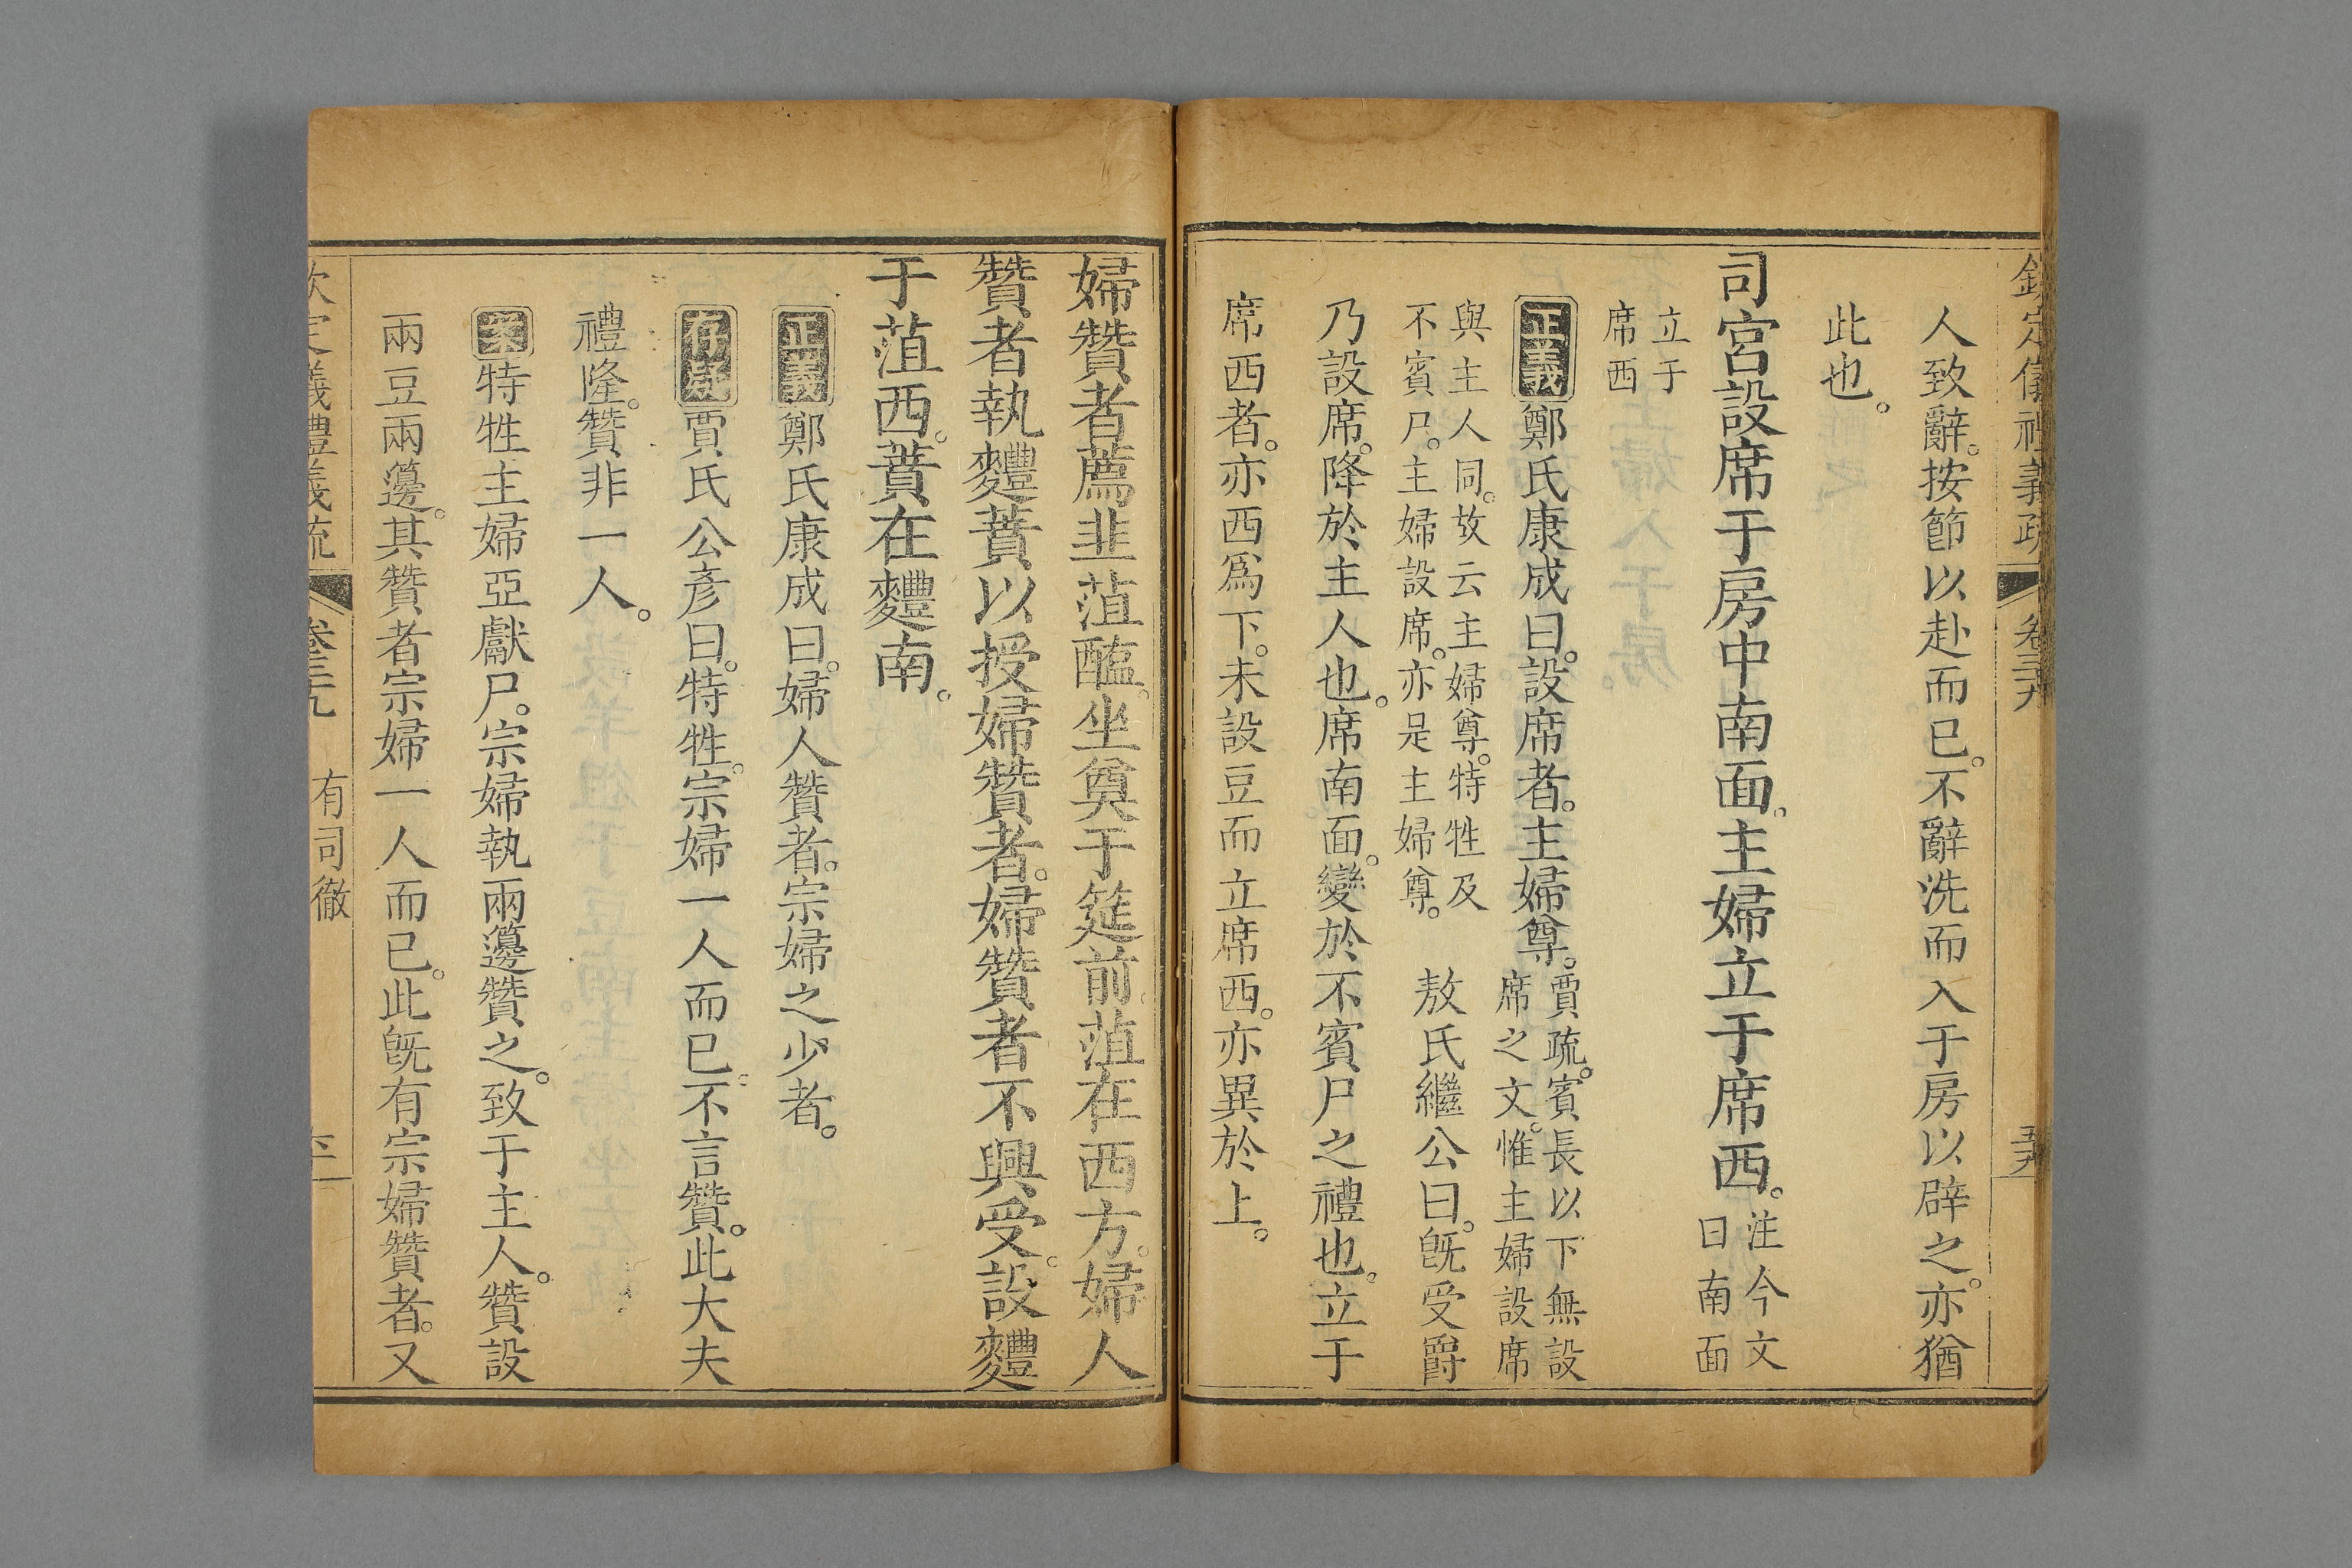 欽定儀禮義疏 卷三十九
人致辭。按節以赴而已。不辭洗而入于房以辟之。亦猶
此也。
司宮設席于房中南面。主婦立于席西。注今文
曰南面
立于
席西
正義鄭氏康成曰。設席者。主婦尊。賈疏。賓長以下無設
席之文。惟主婦設席
與主人同。故云主婦尊。特牲及
不賓尸。主婦設席。亦是主婦尊。敖氏繼公曰。旣受爵
乃設席。降於主人也。席南面。變於不賓尸之禮也。立于
席西者。亦西爲下。未設豆而立席西。亦異於上。
婦贊者薦韭菹醢。坐奠于筵前。菹在西方。婦人
贊者執麷蕡以授婦贊者。婦贊者不興受。設麷
于菹西。蕡在麷南。
正義鄭氏康成曰。婦人贊者。宗婦之少者。
存疑賈氏公彥曰。特牲。宗婦一人而已。不言贊。此大夫
禮隆。贊非一人。
案特牲主婦亞獻尸。宗婦執兩籩贊之。致于主人。贊設
兩豆兩籩。其贊者宗婦一人而已。此旣有宗婦贊者。又
欽定儀禮義疏 卷三十九 有司徹